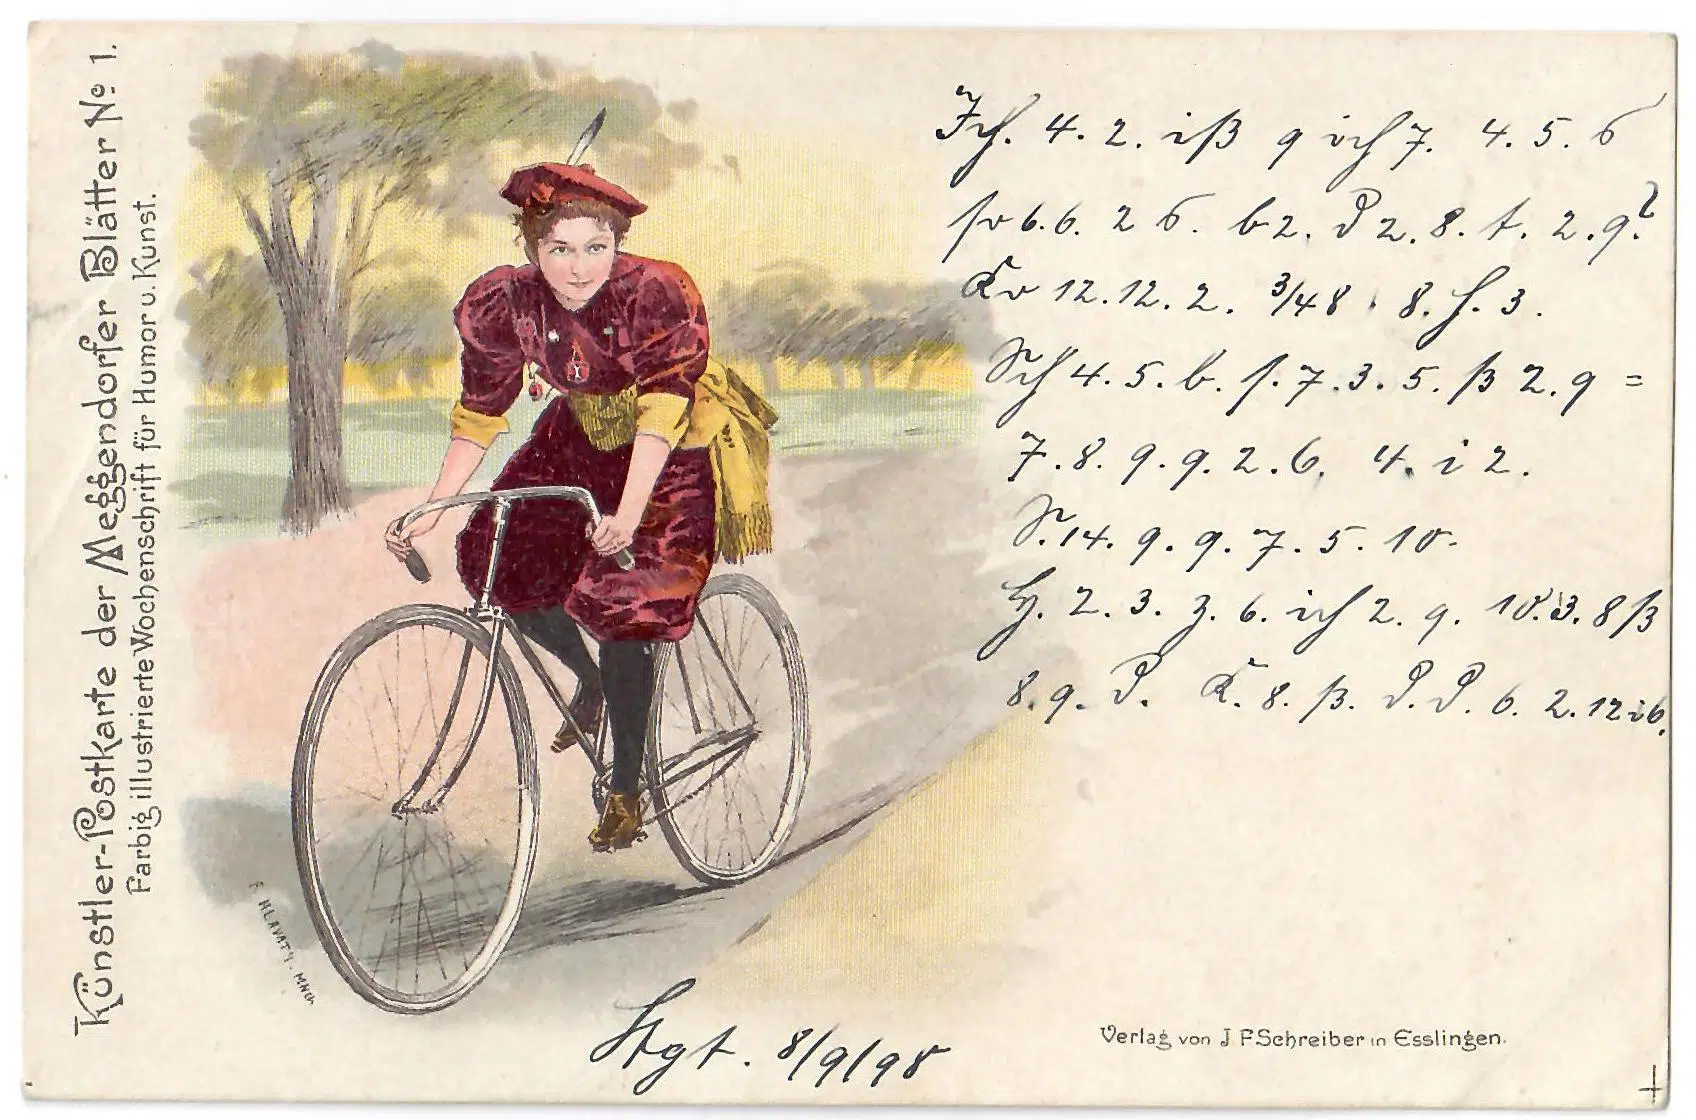 Künstler-Postkarte der Meggendorfer Blätter No 1.
Farbig illustrierte Wochenschrift für Humor u. Kunst.
Ich. 4. 2. iß 9 ich 7. 4. 5. 6
so 6.6. 2 6. b 2. d 2. 8. t. 2. 9?
Ko 12.12.2. 3/48. 8. h. 3.
Sch 4. 5. b. s. 7. 3. 5. ß 2. 9 =
7. 8. 9. 9. 2. 6. 4. i 2.
S. 14. 9. 9. 7. 5. 10.
H. 2. 3. z. 6. ich 2. 9. 10. 3. 8 ß
8. 9. d. K. 8. ß. d. d. 6. 2. 12 i 6.
F. HLAVATY. MNCH
Stgt. 8/9/98
Verlag von J F Schreiber in Esslingen.